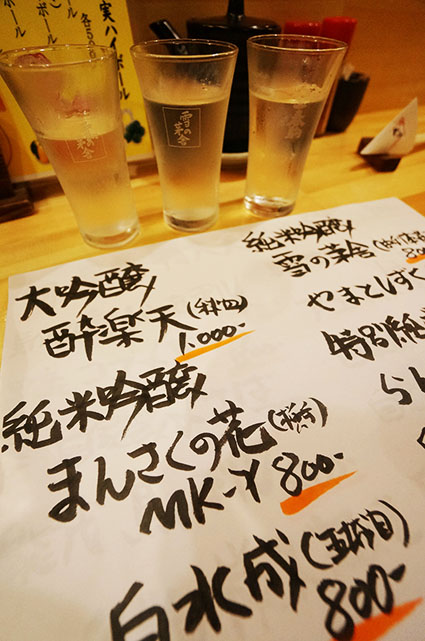 実ハイボール
ボール
各5
雪の茅舎
雪の茅舎
大吟醸
酔楽天(秋田)
1,000-
純米吟醸
まんさくの花
MK-Y 800-
白水成
800-
純米吟醸
雪の茅舎
やまとしずく
特別純